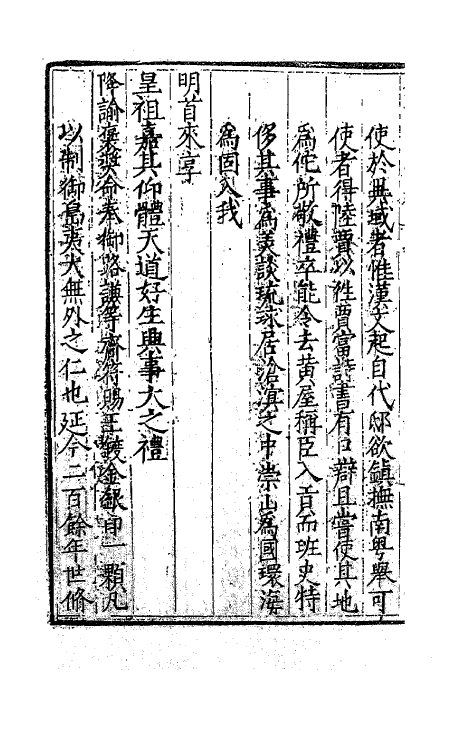 使於異域者惟漢文起自代邸欲鎮撫南粵舉可
使者得陸賈以徃賈當詩書有口辯且嘗使其地
為佗所敬禮卒能令去黃屋稱臣入貢而班史特
侈其事為美談琉球居滄溟之中崇山為國環海
為固入我
明首來享
皇祖嘉其仰體天道好生與事大之禮
降諭褒奬命奉御路謙等齎符賜王鍍金銀印一顆凡
以制御島夷大無外之仁也延今二百餘年世脩